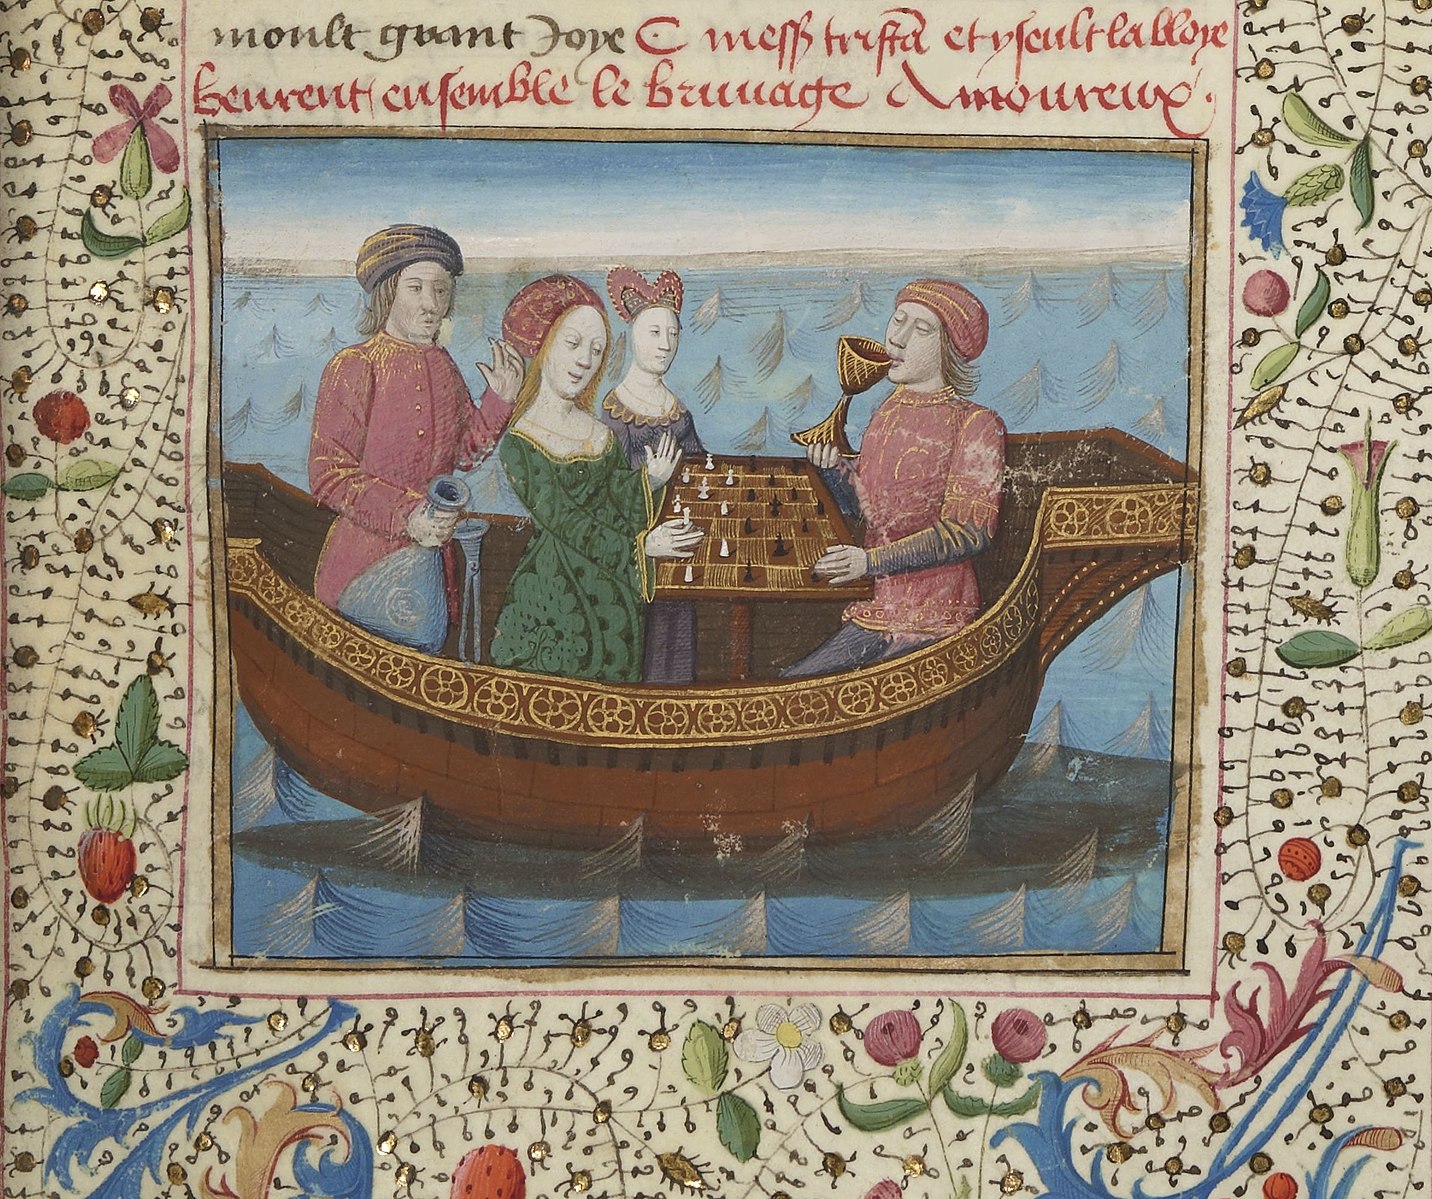 moult grant Joye C mess̄ tristā et yseult la bloye
beurent ensemble le bruuage Amoureux.